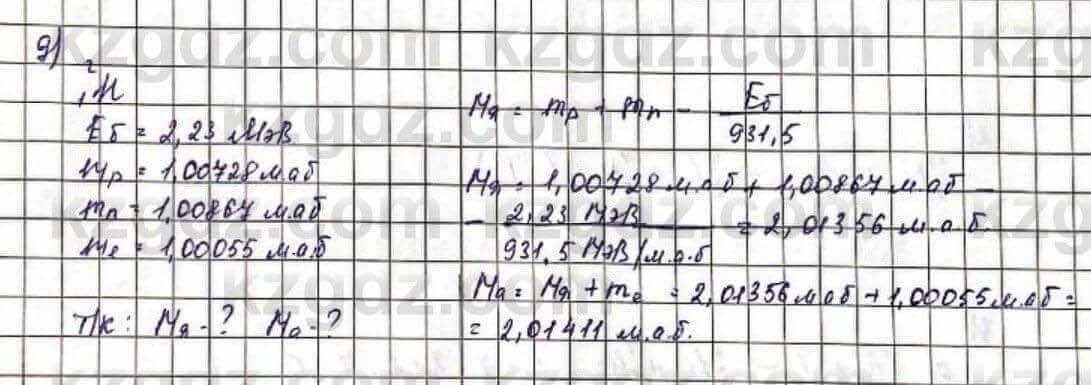 9)
²₁H
Eб = 2,23 МэВ
mp = 1,00728 м.а.б
mn = 1,00867 м.а.б
me = 1,00055 м.а.б
Т/к: Mя - ? Ma - ?
Mя = mp + mn - Eб / 931,5
Mя = 1,00728 м.а.б + 1,00867 м.а.б -
- 2,23 МэВ / 931,5 МэВ/м.а.б = 2,01356 м.а.б.
Ma = Mя + me = 2,01356 м.а.б + 1,00055 м.а.б =
= 2,01411 м.а.б.
kzgdz.com